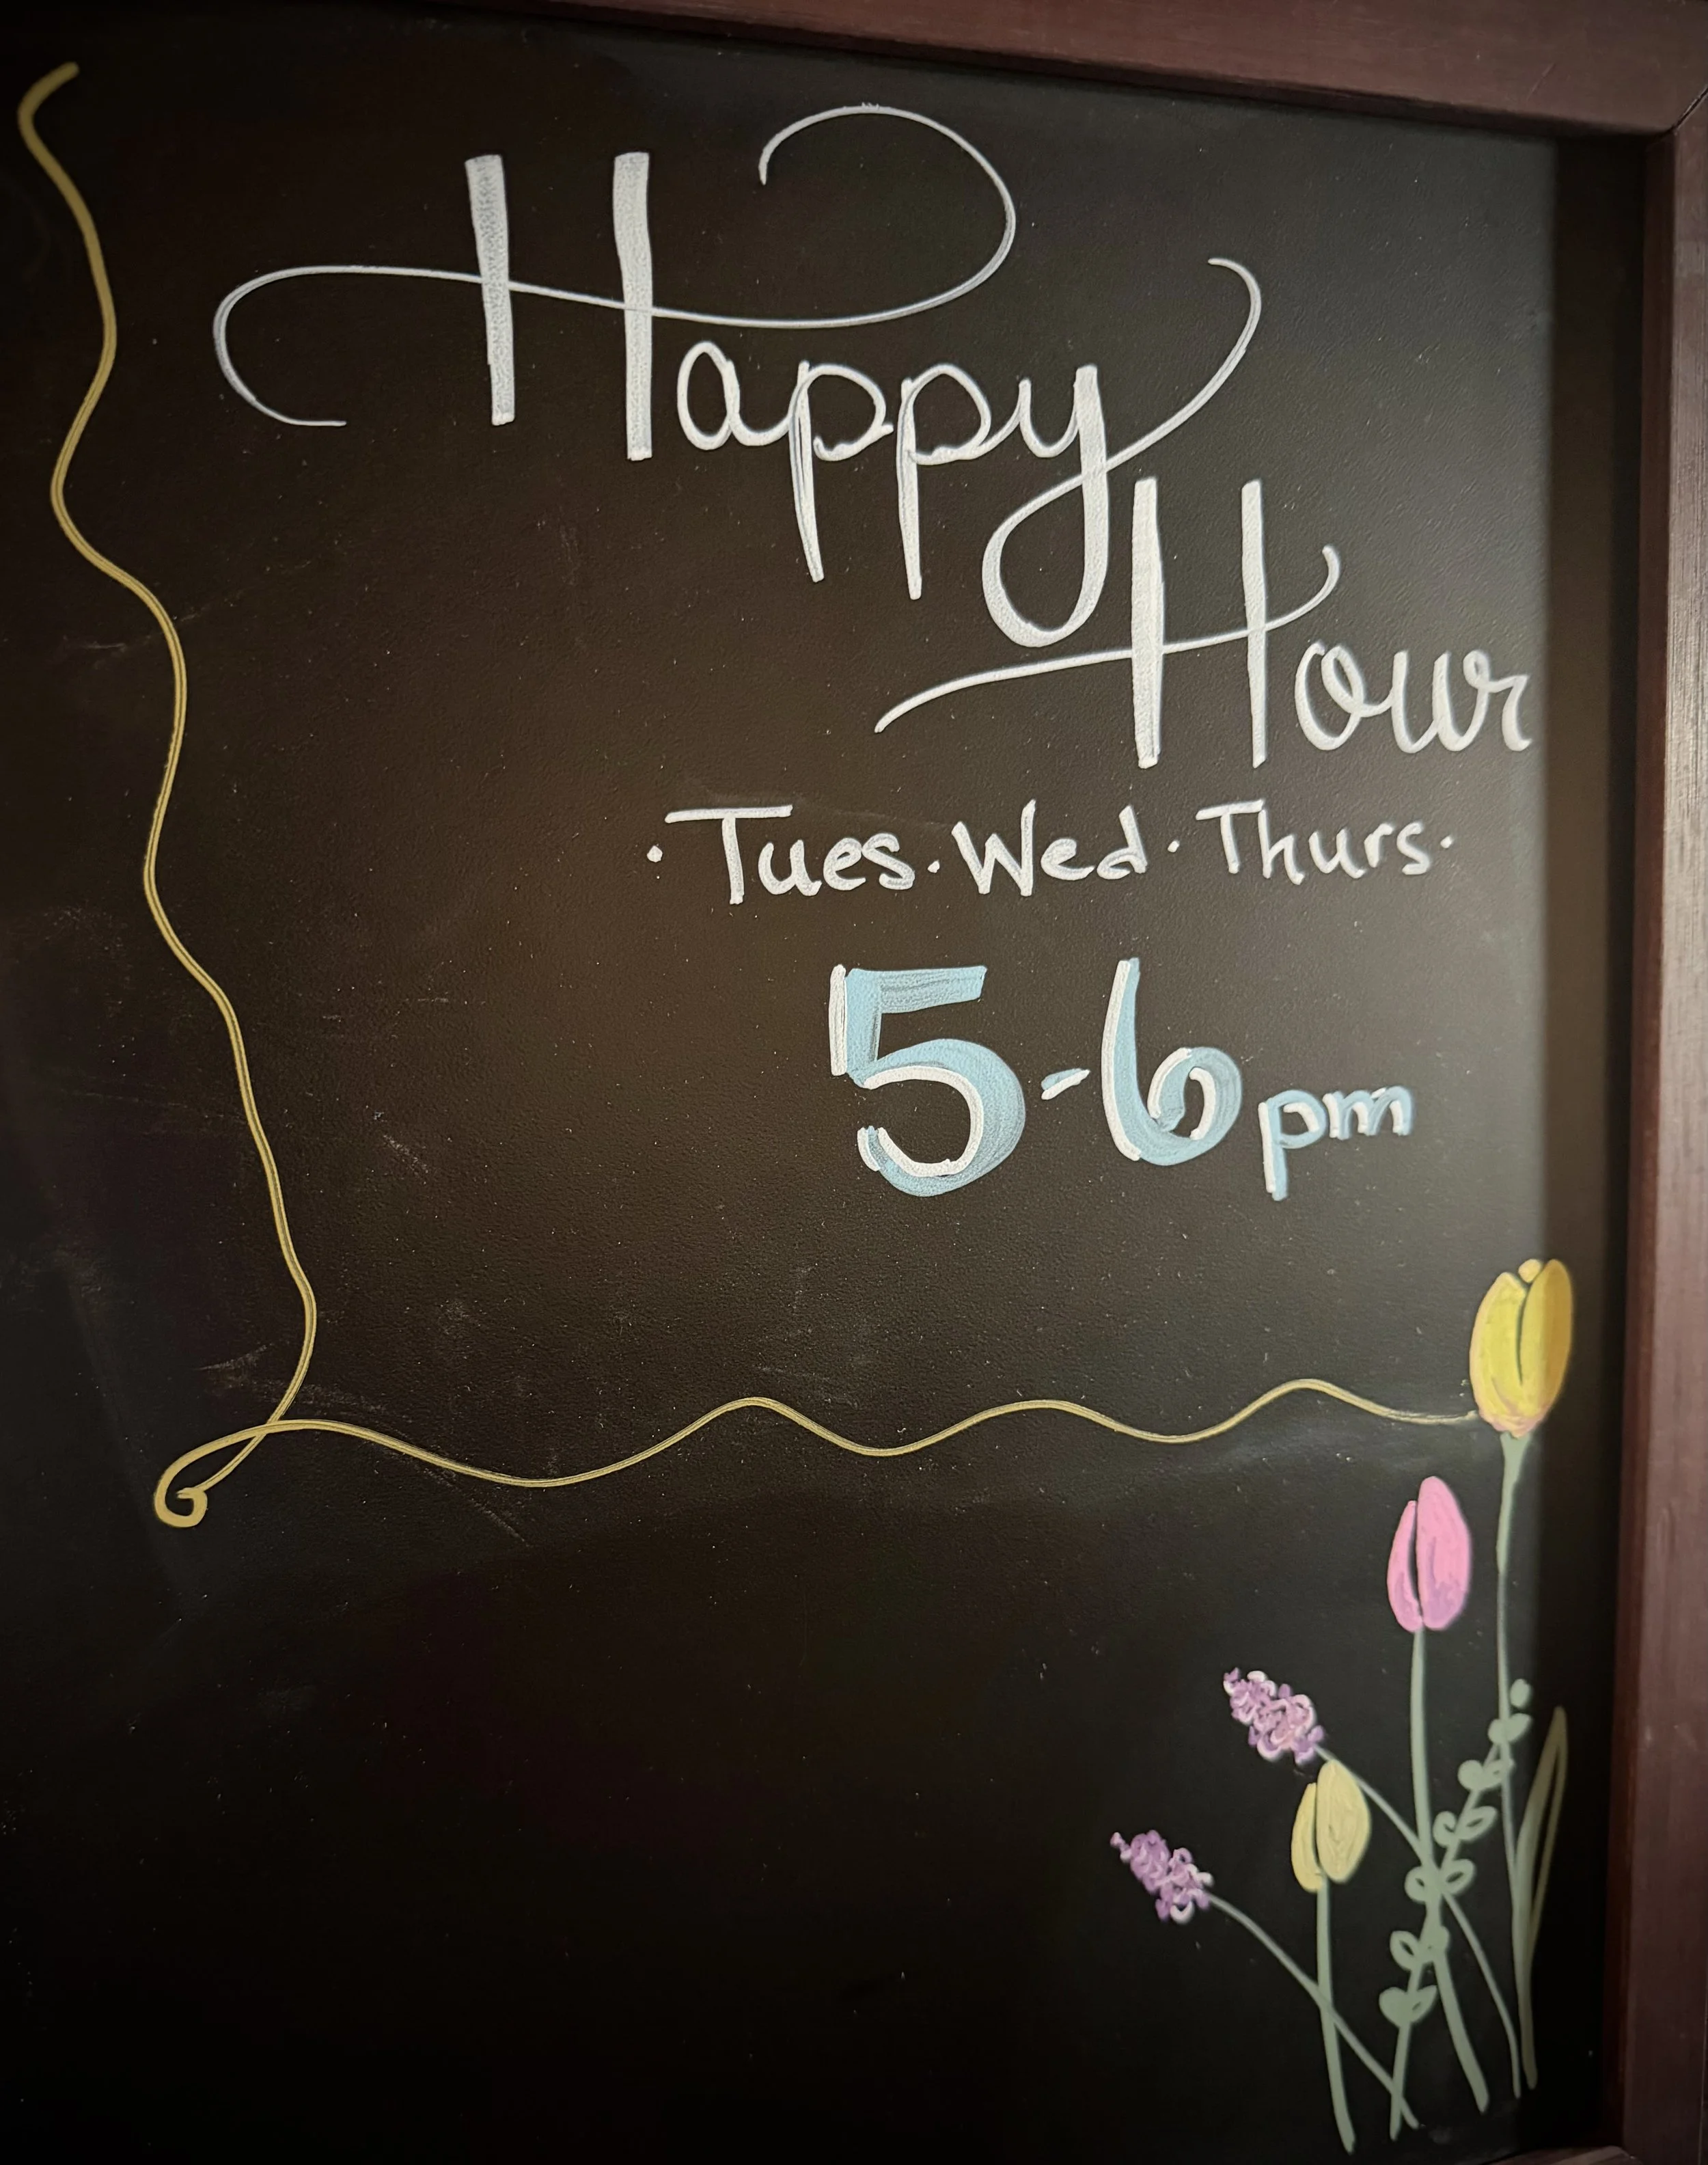 Happy
Hour
· Tues · Wed · Thurs ·
5-6pm